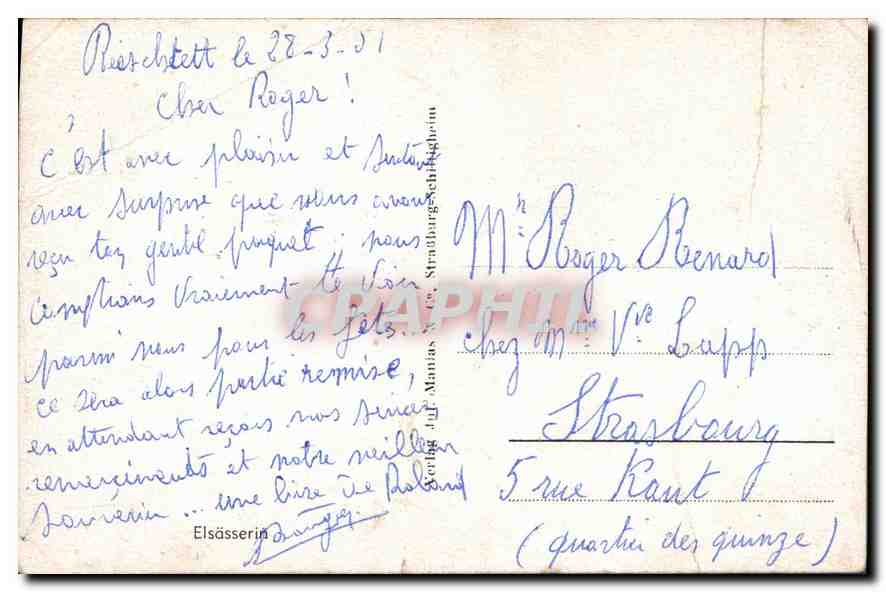 le 28-3-51
Cher Roger !
C'est avec plaisir et surtout
avec surprise que nous avons
reçu ton gentil paquet; nous
comptions vraiment te voir
parmi nous pour les fêtes...
ce sera alors partie remise,
en attendant reçois nos sincères
remerciements et notre meilleur
souvenir ... une bise de Roland
Elsässerin
Verlag Jul. Manias & Co., Straßburg-Schiltigheim
CPAPHIL
Mr Roger Renard
chez Mme Vve Lupp
Strasbourg
5 rue Kant
(quartier des quinze)